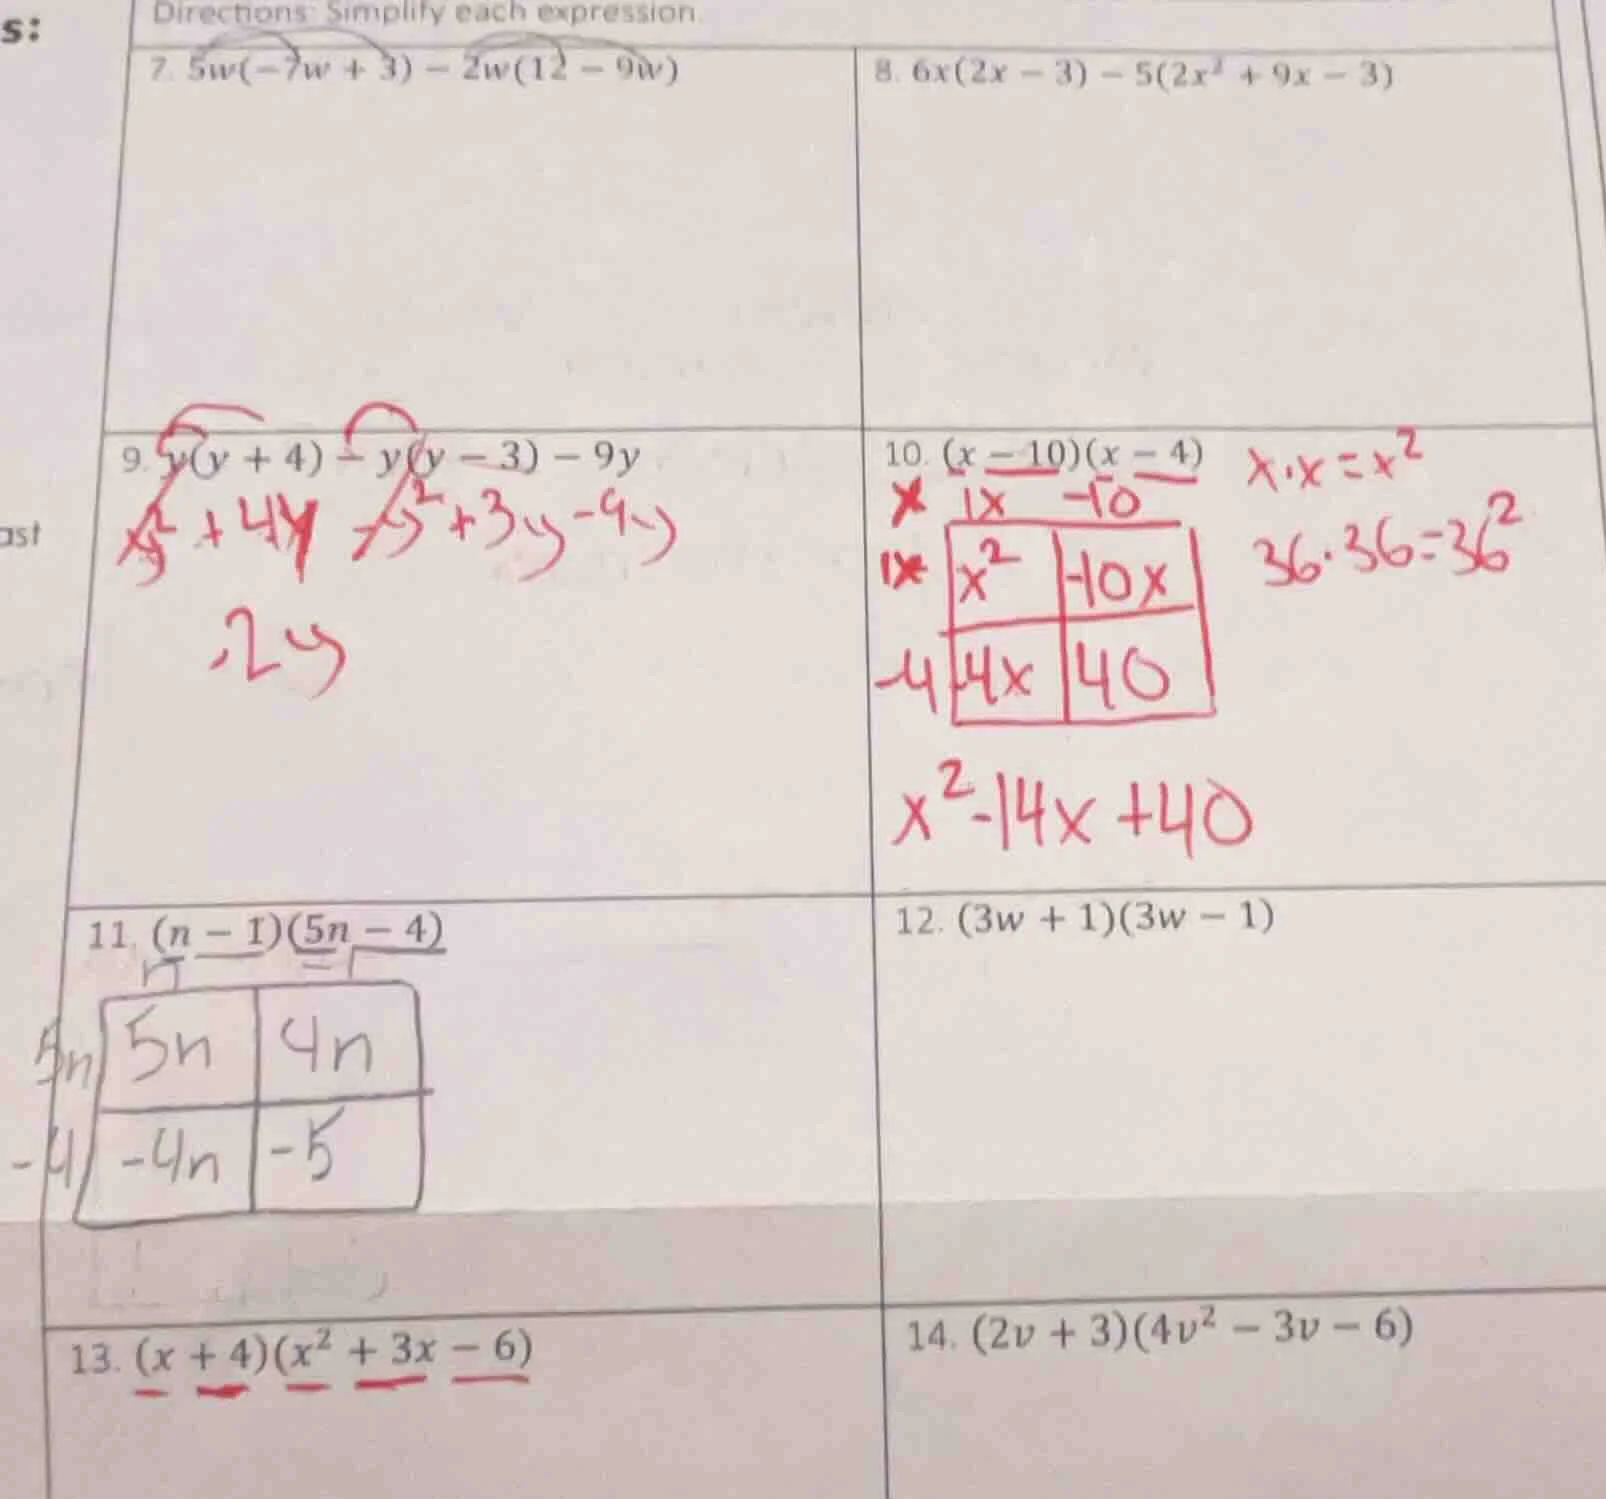 s:
Directions: Simplify each expression.
7. 5w(−7w + 3) − 2w(12 − 9w)
8. 6x(2x − 3) − 5(2x² + 9x − 3)
9. y(y + 4) − y(y − 3) − 9y
y² + 4y − y² + 3y − 9y
-2y
ast
10. (x − 10)(x − 4)
x · x = x²
36 · 36 = 36²
x 1x -10
1x x² -10x
-4 -4x 40
x² - 14x + 40
11. (n − 1)(5n − 4)
n
5n 5n 4n
-4 -4n -5
12. (3w + 1)(3w − 1)
13. (x + 4)(x² + 3x − 6)
14. (2v + 3)(4v² − 3v − 6)